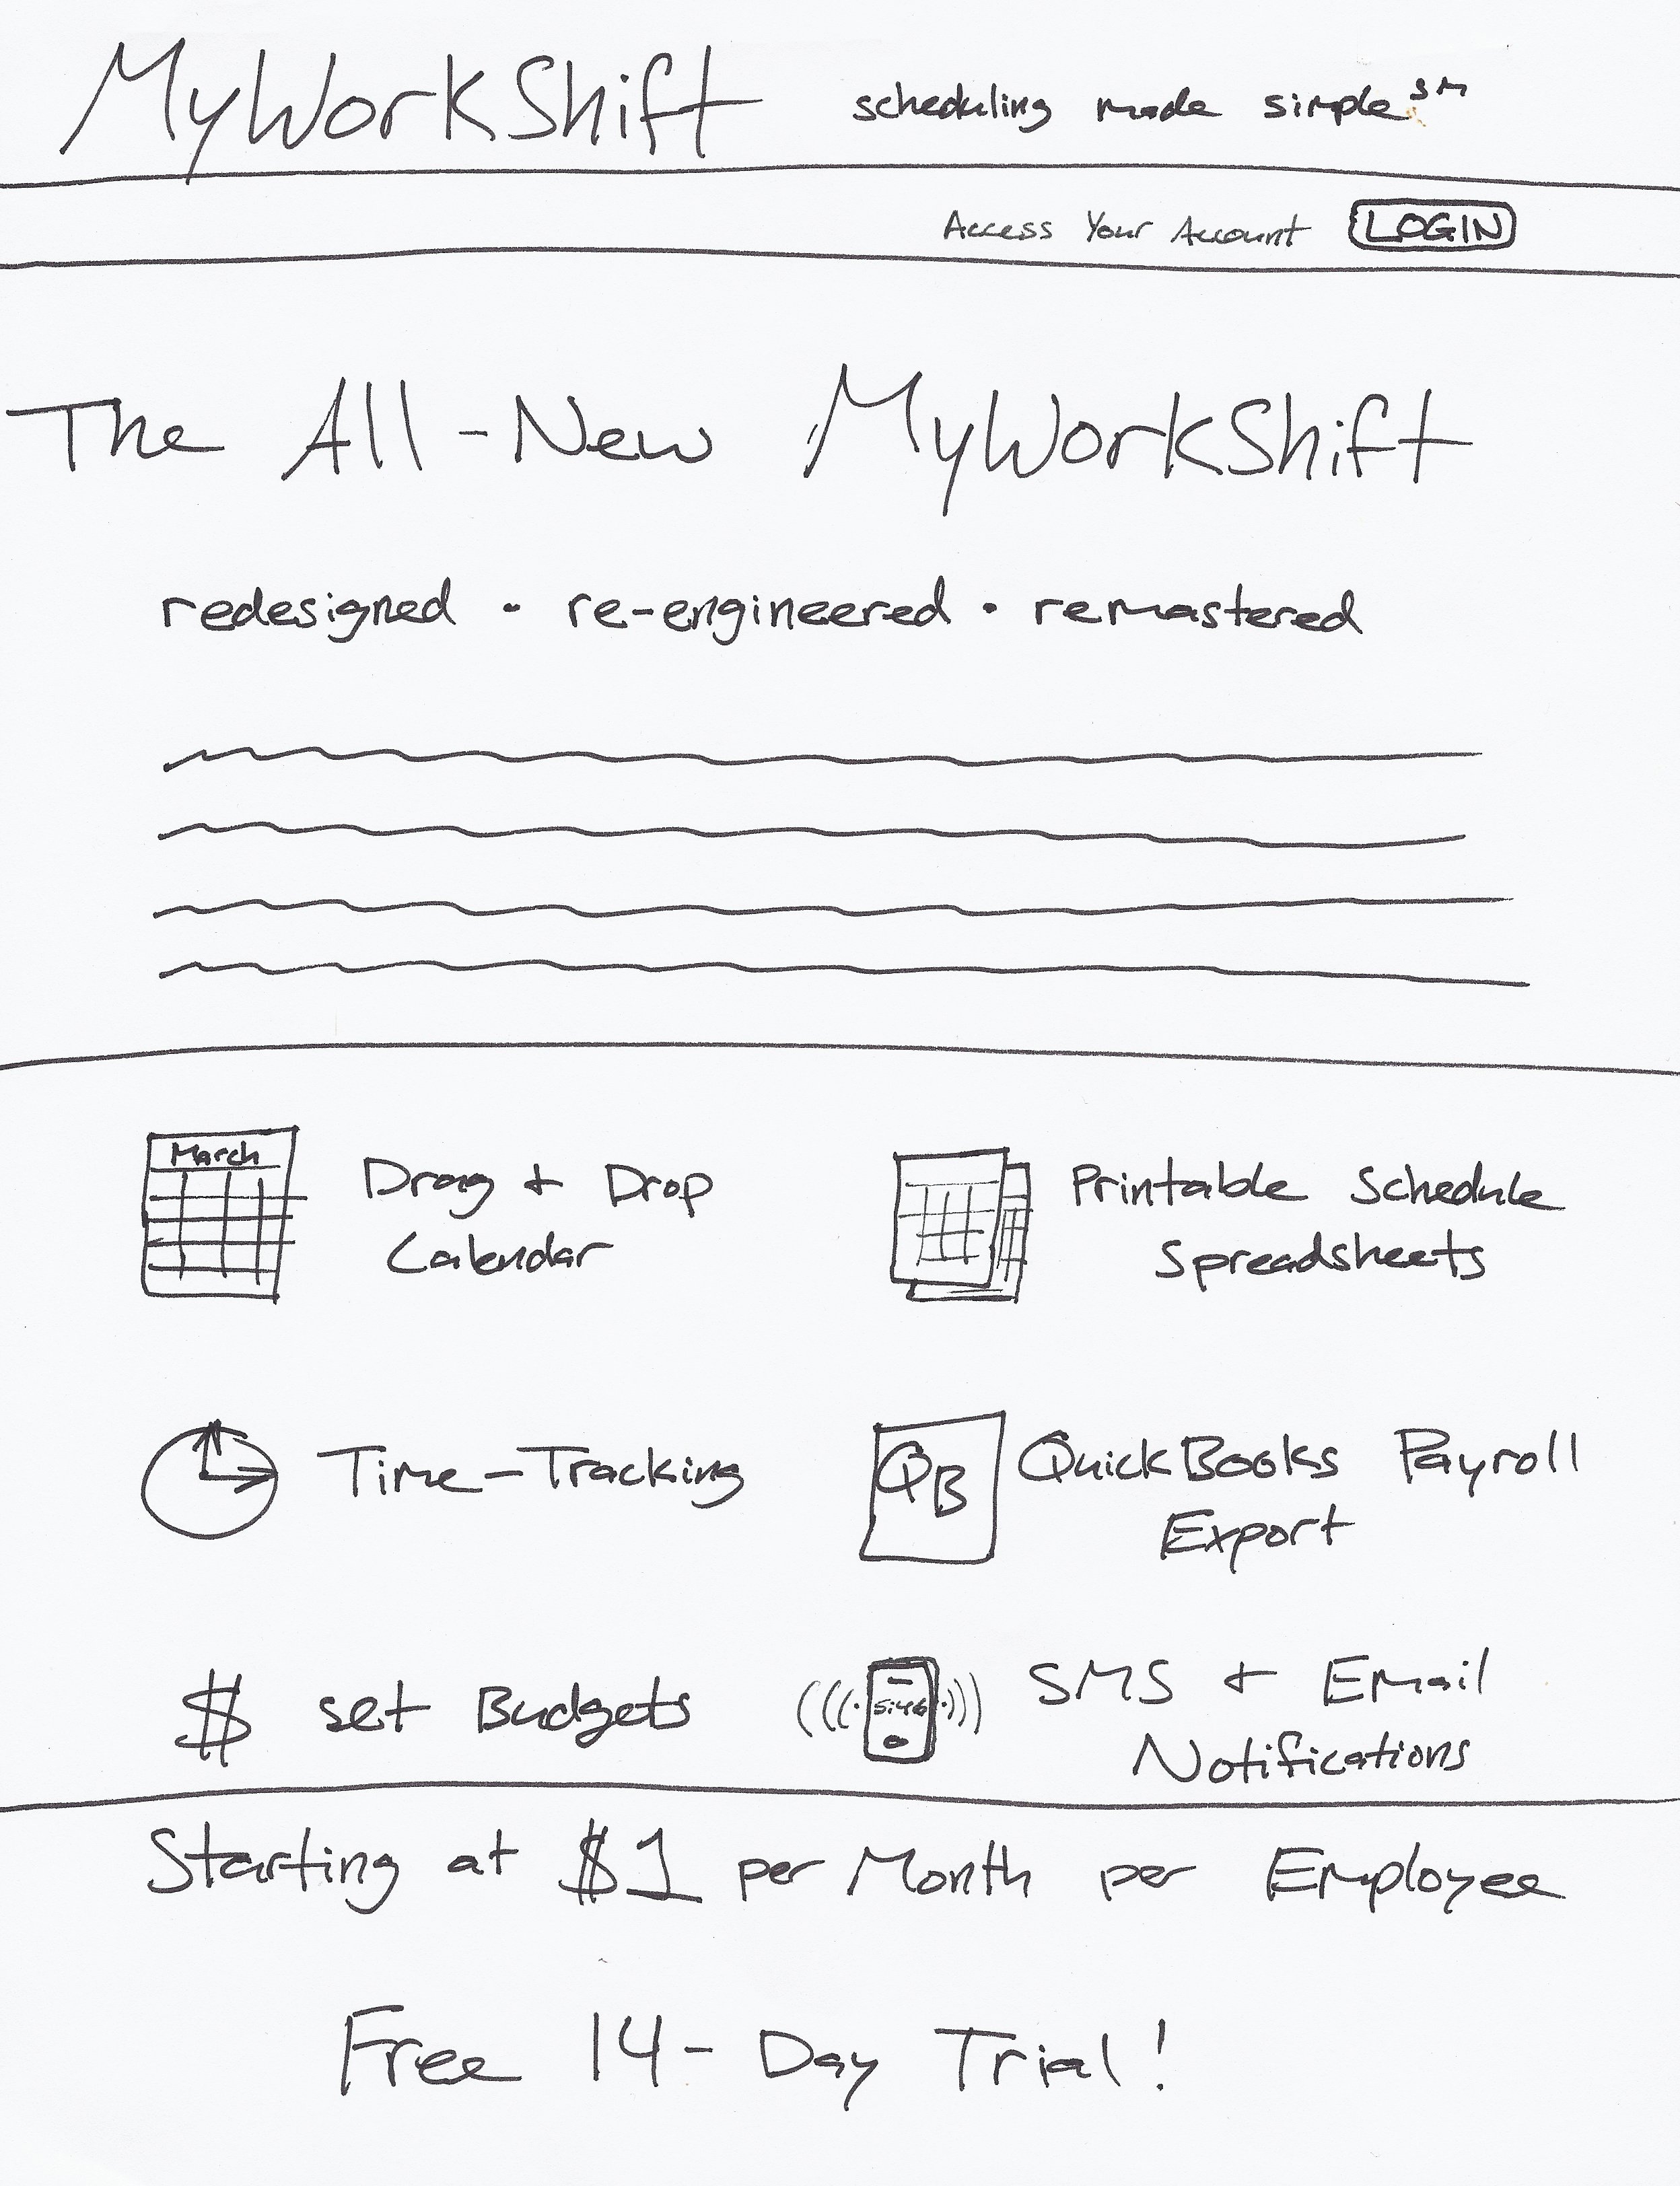 MyWorkShift scheduling made simple SM
Access Your Account LOGIN
The All-New MyWorkShift
redesigned • re-engineered • remastered
March
Drag + Drop
Calendar
Printable Schedule
Spreadsheets
Time-Tracking
QB
QuickBooks Payroll
Export
$ set Budgets
5:46
SMS + Email
Notifications
Starting at $1 per Month per Employee
Free 14-Day Trial!